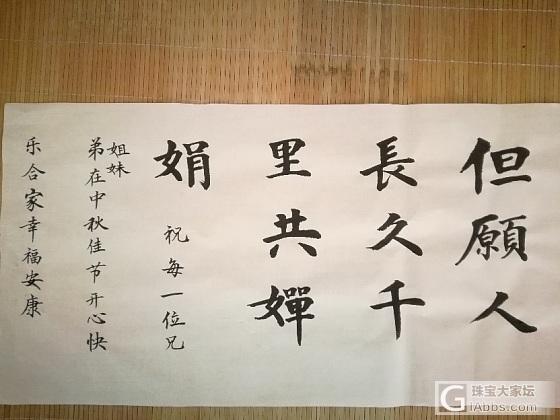 但願人
長久千
里共嬋
娟
祝每一位兄
弟姐妹在中秋佳节开心快
乐合家幸福安康
珠宝大家坛
iAbbs.com